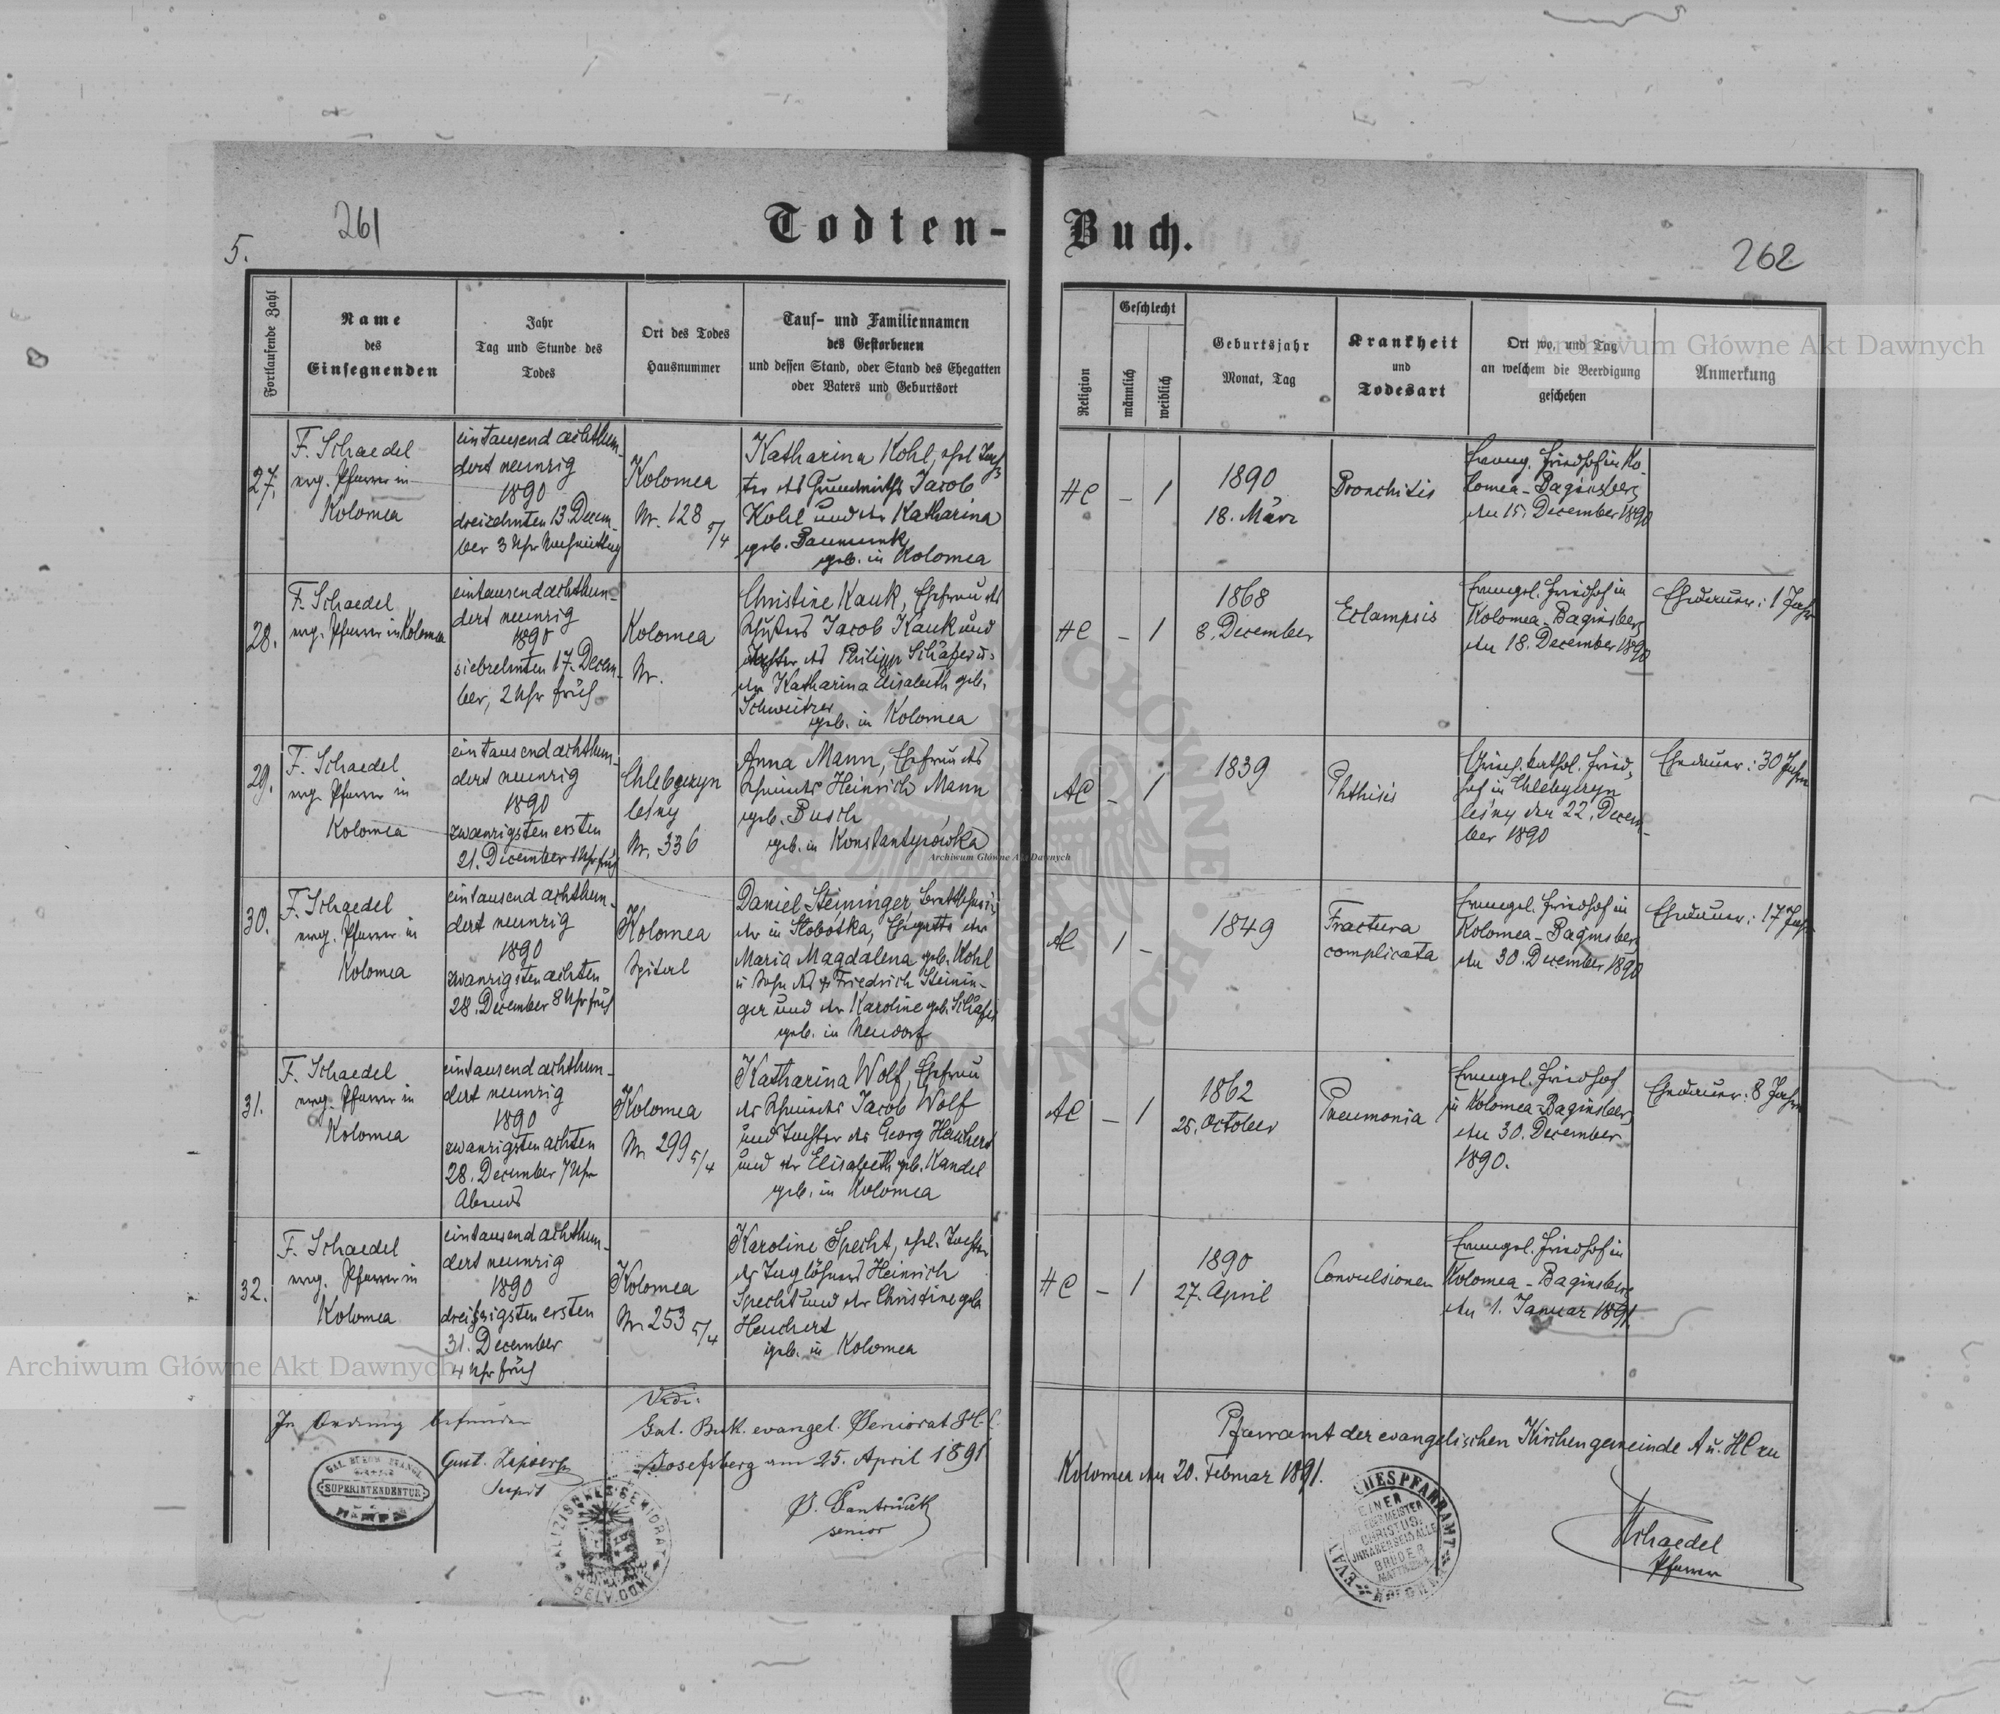 261
Todten-
5.
Fortlaufende Zahl
Name
des
Einsegnenden
Jahr
Tag und Stunde des
Todes
Ort des Todes
Hausnummer
Tauf- und Familiennamen
des Gestorbenen
und dessen Stand, oder Stand des Ehegatten
oder Vaters und Geburtsort
27.
F. Schaedel
evg. Pfarrer in
Kolomea
eintausend achthun-
dert neunzig
1890
dreizehnten 13. Decem-
ber 3 Uhr Nachmittag
Kolomea
Nr. 128 5/4
Katharina Kohl, ehel. Toch-
ter des Grundwirths Jacob
Kohl und der Katharina
geb.
geb. in Kolomea
28.
F. Schaedel
evg. Pfarrer in Kolomea
eintausend achthun-
dert neunzig
1890
siebzehnten 17. Decem-
ber, 2 Uhr früh
Kolomea
Nr.
Christine Kauk, Ehefrau des
Jacob Kauk und
Tochter des Philipp Schäfer u.
der Katharina Elisabeth geb.
Schweitzer
geb. in Kolomea
29.
F. Schaedel
evg. Pfarrer in
Kolomea
eintausend achthun-
dert neunzig
1890
zwanzigsten ersten
21. December 1 Uhr früh
Chlebyczyn
leśny
Nr. 336
Anna Mann, Ehefrau des
Heinrich Mann
geb. Busch
geb. in Konstantynówka
30.
F. Schaedel
evg. Pfarrer in
Kolomea
eintausend achthun-
dert neunzig
1890
zwanzigsten achten
28. December 8 Uhr früh
Kolomea
Spital
Daniel Steininger
der in Slobotka, Ehegatte der
Maria Magdalena geb. Kohl
u Sohn des Friedrich Steinin-
ger und der Karoline geb. Schäfer
geb. in Neudorf
31.
F. Schaedel
evg. Pfarrer in
Kolomea
eintausend achthun-
dert neunzig
1890
zwanzigsten achten
28. December 7 Uhr
Abends
Kolomea
Nr. 299 5/4
Katharina Wolf, Ehefrau
des Jacob Wolf
und Tochter des Georg Heuchert
und der Elisabeth geb. Kandel
geb. in Kolomea
32.
F. Schaedel
evg. Pfarrer in
Kolomea
eintausend achthun-
dert neunzig
1890
dreißigsten ersten
31. December
4 Uhr früh
Kolomea
Nr. 253 5/4
Karoline Specht, ehel. Tochter
des Taglöhners Heinrich
Specht und der Christine geb.
Heuchert
geb. in Kolomea
In Ordnung befunden
Gust.
Supdt
SUPERINTENDENTUR
Vidi.
Gal. Buk. evangel. Seniorat H. C.
Josefsberg am 25. April 1891
senior
Buch.
262
Religion
Geschlecht
männlich
weiblich
Geburtsjahr
Monat, Tag
Krankheit
und
Todesart
Ort wo, und Tag
an welchem die Beerdigung
geschehen
Anmerkung
HC
–
1
1890
18. März
Bronchitis
Evang. Friedhof in Ko-
lomea-Baginsberg
den 15. December 1890
HC
–
1
1868
8. December
Eclampsis
Evangel. Friedhof in
Kolomea-Baginsberg
den 18. December 1890
Ehedauer: 1 Jahr
AC
–
1
1839
Phthisis
Griech. kathol. Fried-
hof in Chlebyczyn
leśny den 22. Decem-
ber 1890
Ehedauer: 30 Jahre
AC
1
–
1849
Fractura
complicata
Evangel. Friedhof in
Kolomea-Baginsberg
den 30. December 1890
Ehedauer: 17 Jahre
AC
–
1
1862
25. October
Pneumonia
Evangel. Friedhof
in Kolomea-Baginsberg
den 30. December
1890.
Ehedauer: 8 Jahre
HC
–
1
1890
27. April
Convulsionen
Evangel. Friedhof in
Kolomea-Baginsberg
den 1. Januar 1891.
Pfarramt der evangelischen Kirchengemeinde A u. HC zu
Kolomea den 20. Februar 1891.
EINER
IST EUER MEISTER
CHRISTUS,
IHR ABER SEID ALLE
BRÜDER
Schaedel
Pfarrer
Archiwum Główne Akt Dawnych
Archiwum Główne Akt Dawnych
Archiwum Główne Akt Dawnych